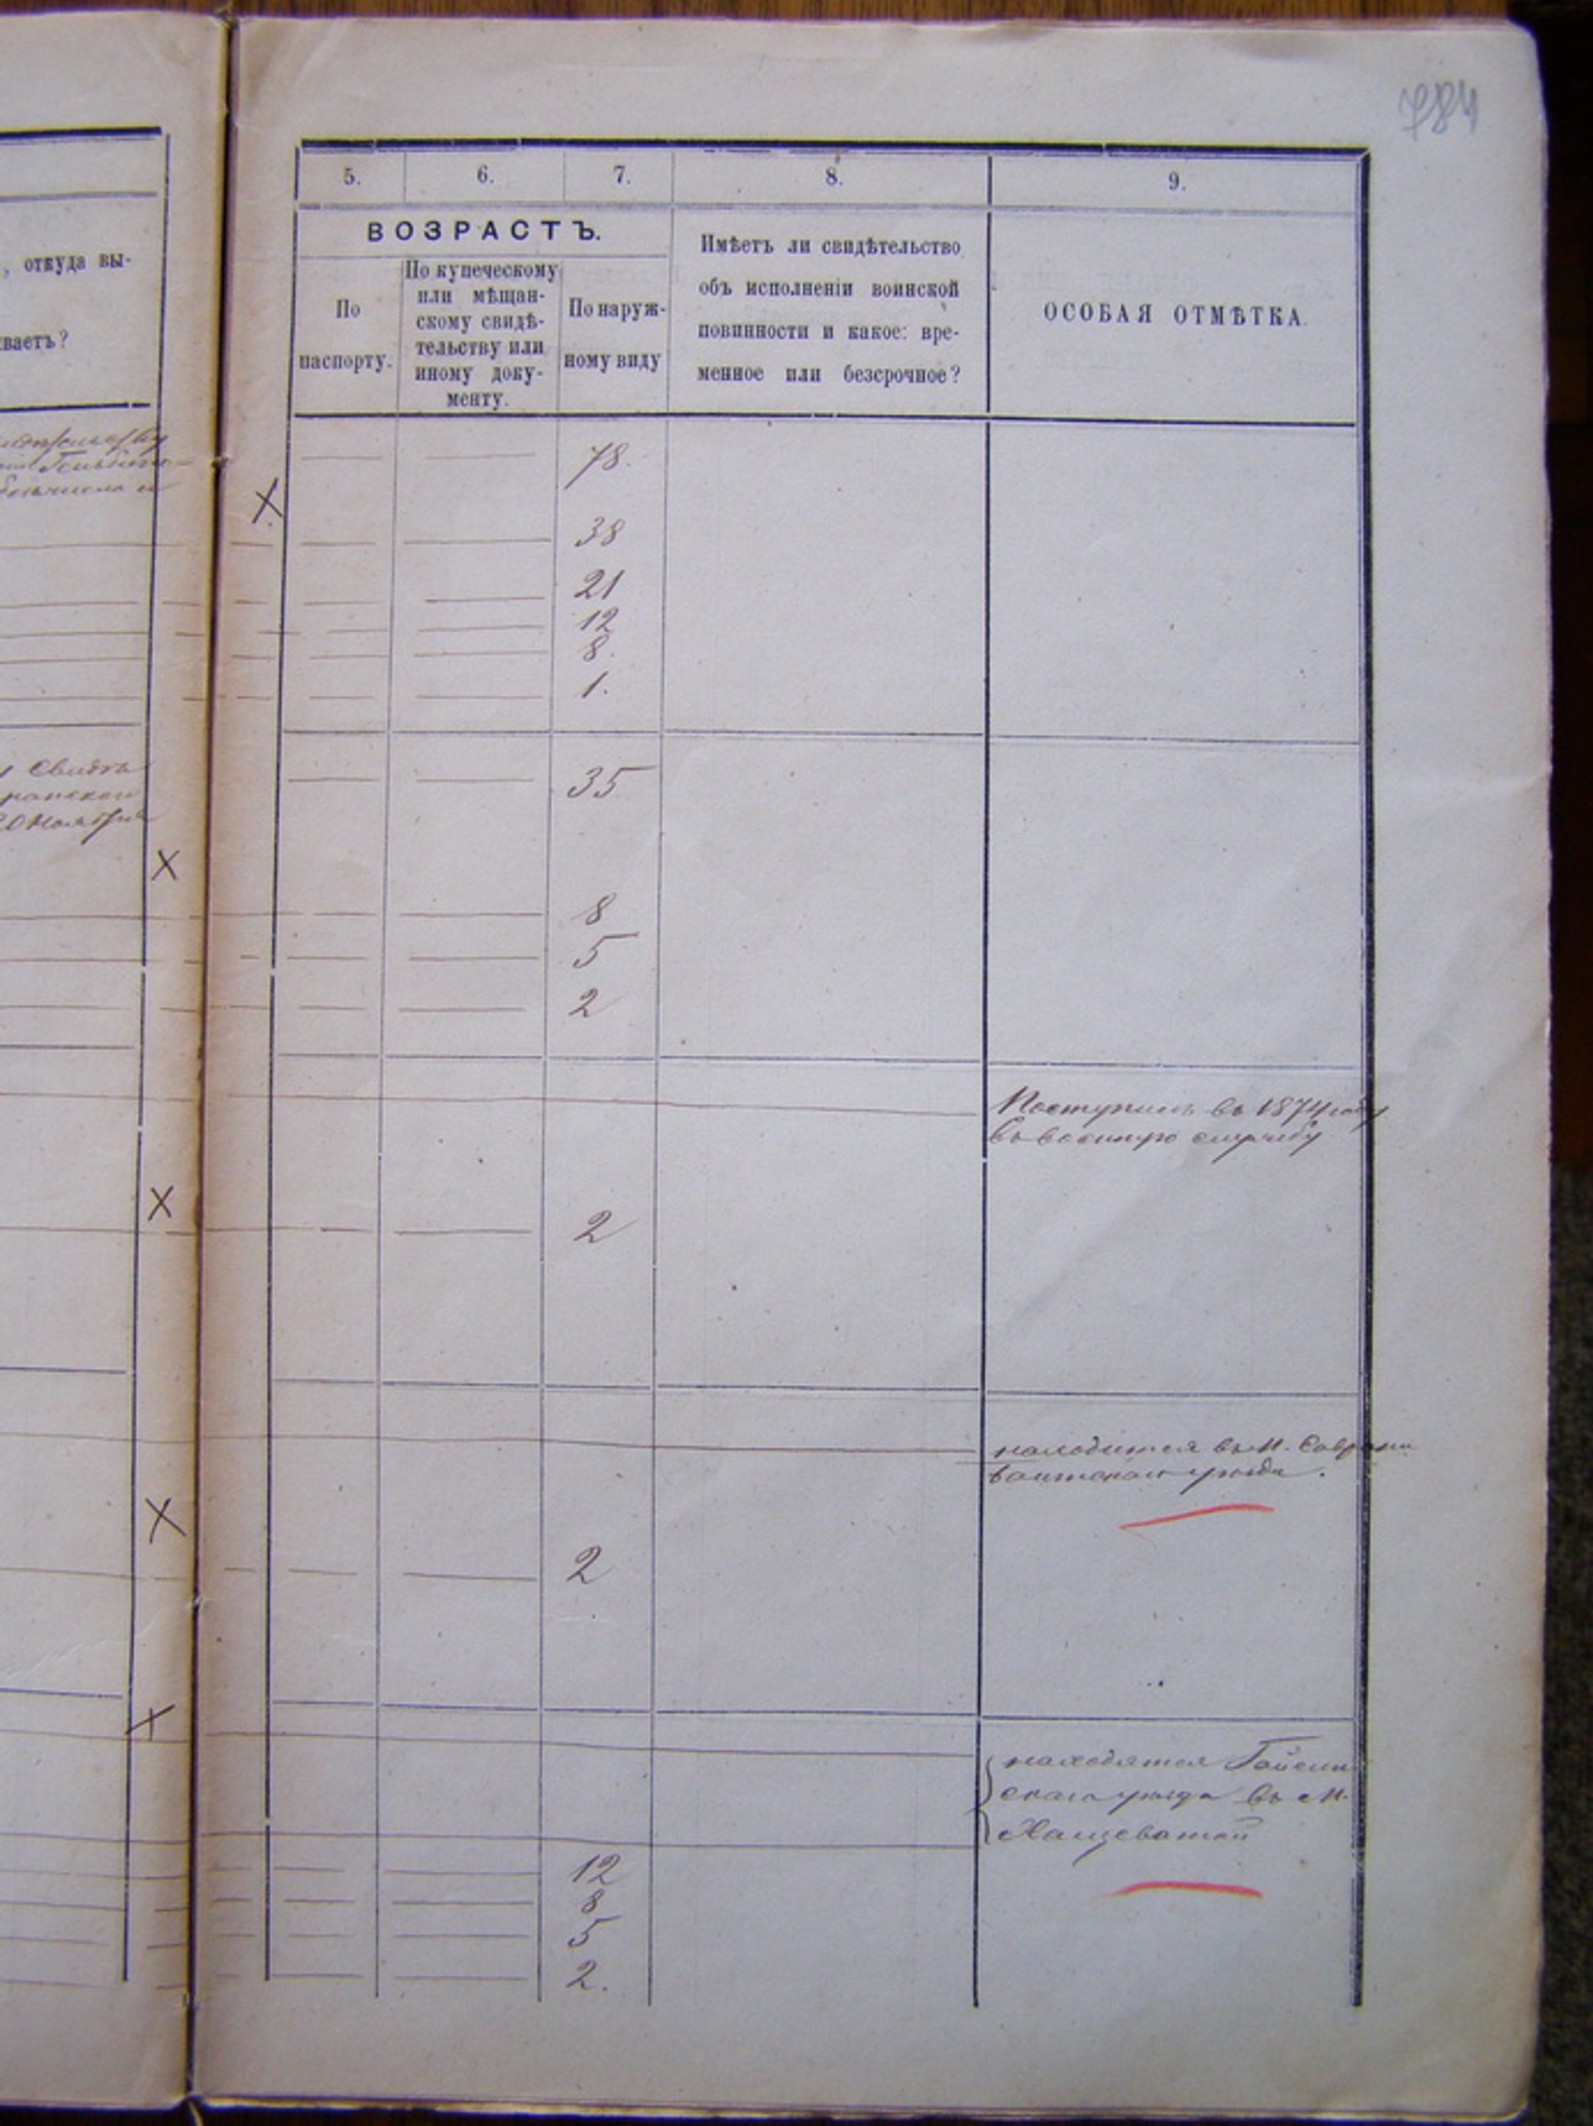 784
5. 6. 7. 8. 9.
, откуда вы-
ваетъ?
ВОЗРАСТЪ.
По
паспорту.
По купеческому
или мѣщан-
скому свидѣ-
тельству или
иному доку-
менту.
По наруж-
ному виду
Имѣетъ ли свидѣтельство
объ исполненіи воинской
повинности и какое: вре-
менное или безсрочное?
ОСОБАЯ ОТМѢТКА.
78.
38
21
12
8.
1.
35
8
5
2
Поступилъ въ 1874 году
въ военную службу
2
находится въ М. Саврани
Балтскаго уѣзда.
2
находятся Гайсин
скаго уѣзда въ М.
Хащеватой
12
8
5
2.